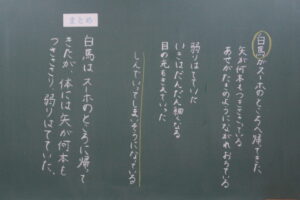 白馬がスーホのところへ帰ってきた。
矢が何本もつきささっている
あせがたきのようにながれおちている
弱りはてていた
いきはだんだん細くなる
目の光もきえていった
しんでいってしまいそうになっている
まとめ
白馬は、スーホのところに帰って
きたが、体には矢が何本も
つきささり、弱りはてていた。